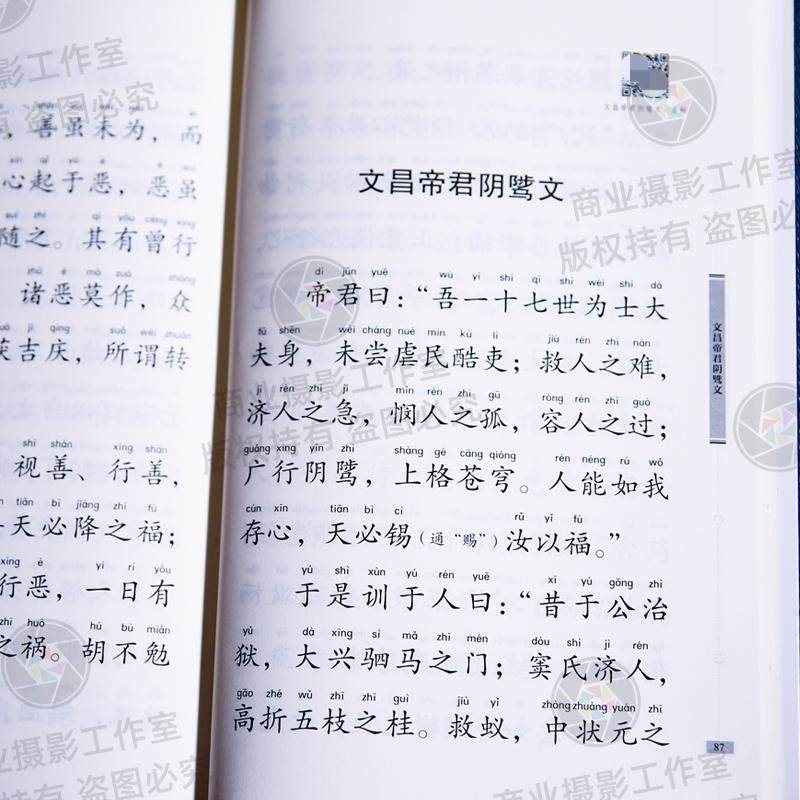 ，善虽未为，而
心起于恶，恶虽
随之。其有曾行
诸恶莫作，众
获吉庆，所谓转
视善、行善，
天必降之福；
行恶，一日有
之祸。胡不勉
文昌帝君阴骘文
dì jūn yuē wú yī shí qī shì wéi shì dà
帝君曰：“吾一十七世为士大
fū shēn wèi cháng nüè mín kù lì jiù rén zhī nàn
夫身，未尝虐民酷吏；救人之难，
jì rén zhī jí mǐn rén zhī gū róng rén zhī guò
济人之急，悯人之孤，容人之过；
guǎng xíng yīn zhì shàng gé cāng qióng rén néng rú wǒ
广行阴骘，上格苍穹。人能如我
cún xīn tiān bì cì rǔ yǐ fú
存心，天必锡（通“赐”）汝以福。”
yú shì xùn yú rén yuē xī yú gōng zhì
于是训于人曰：“昔于公治
yù dà xīng sì mǎ zhī mén dòu shì jì rén
狱，大兴驷马之门；窦氏济人，
gāo zhé wǔ zhī zhī guì jiù yǐ zhòng zhuàng yuán zhī
高折五枝之桂。救蚁，中状元之
文昌帝君阴骘文
87
商业摄影工作室
版权持有 盗图必究